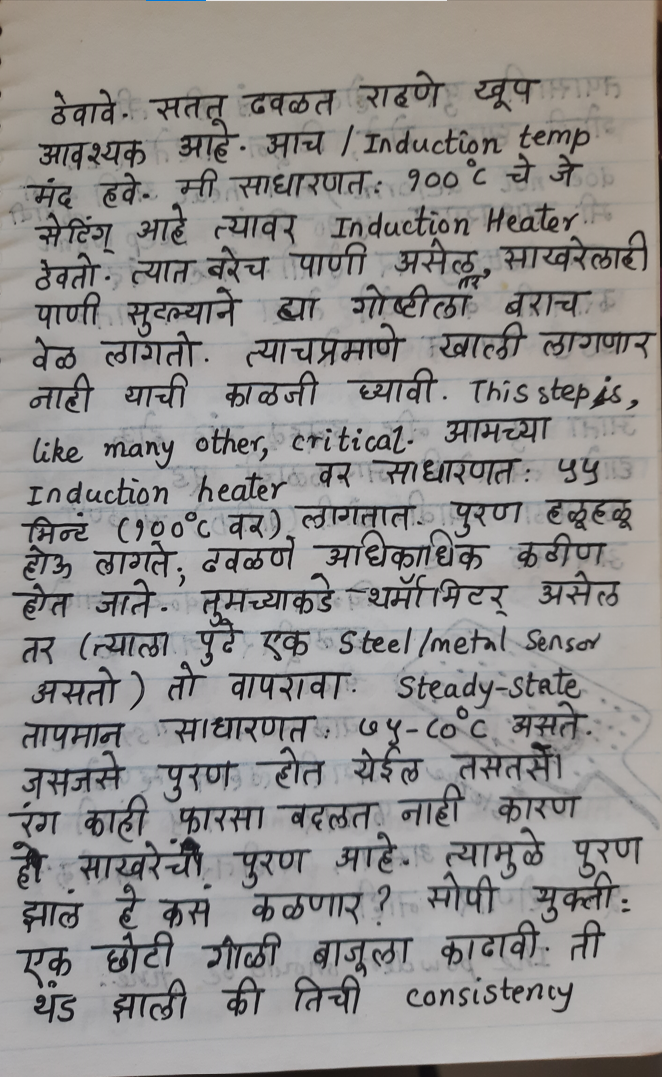 ठेवावे. सतत ढवळत राहणे खूप
आवश्यक आहे. आच / Induction temp
मंद हवे. मी साधारणत: १००°C चे जे
सेटिंग् आहे त्यावर Induction Heater
ठेवतो. त्यात बरेच पाणी असेल, तर साखरेलाही
पाणी सुटल्याने ह्या गोष्टीला बराच
वेळ लागतो. त्याचप्रमाणे खाली लागणार
नाही याची काळजी घ्यावी. This step is,
like many other, critical. आमच्या
Induction heater वर साधारणत: ५५
मिनटं (१००°C वर) लागतात. पुरण हळूहळू
होऊ लागते; ढवळणे अधिकाधिक कठीण
होत जाते. तुमच्याकडे थर्मामिटर् असेल
तर (त्याला पुढे एक Steel/metal Sensor
असतो) तो वापरावा. Steady-state
तापमान साधारणत: ७५-८०°C असते.
जसजसे पुरण होत येईल तसतसा
रंग काही फारसा बदलत नाही कारण
हे साखरेचे पुरण आहे. त्यामुळे पुरण
झालं हे कसं कळणार? सोपी युक्ती:
एक छोटी गोळी बाजूला काढावी. ती
थंड झाली की तिची consistency